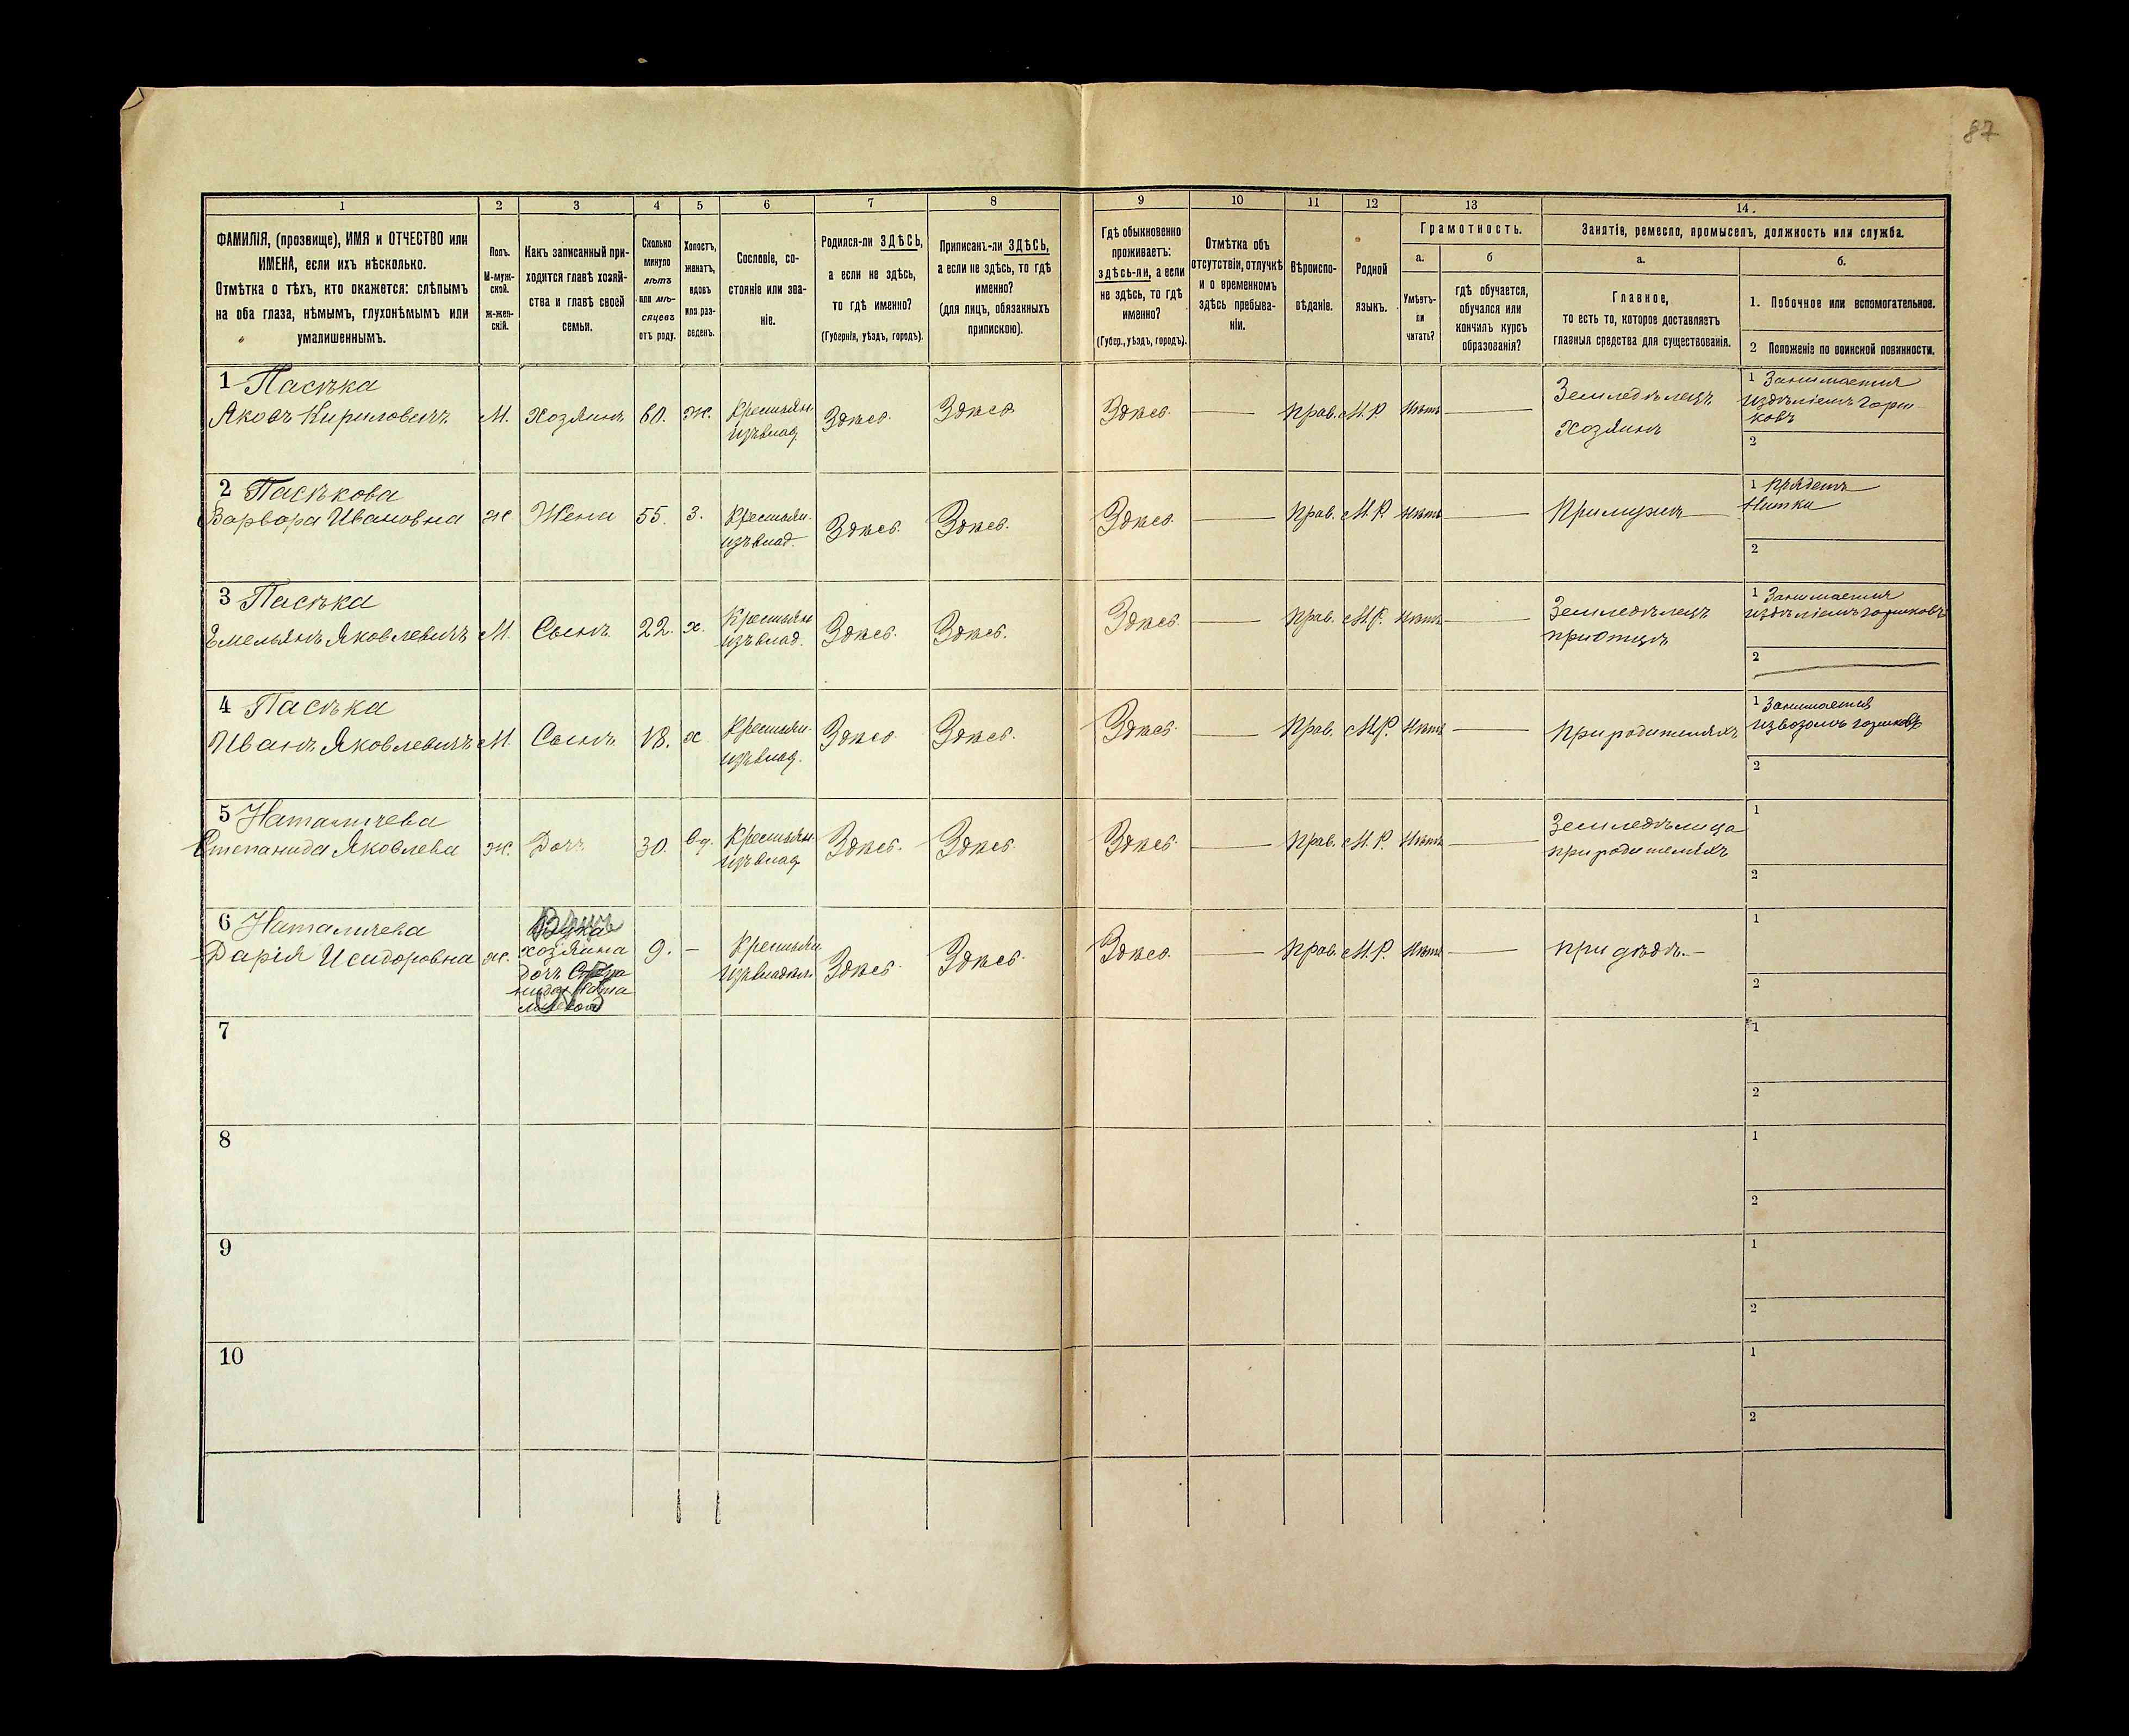 87
1
2
3
4
5
6
7
8
9
10
11
12
13
14.
ФАМИЛІЯ, (прозвище), ИМЯ и ОТЧЕСТВО или
ИМЕНА, если ихъ нѣсколько.
Отмѣтка о тѣхъ, кто окажется: слѣпымъ
на оба глаза, нѣмымъ, глухонѣмымъ или
умалишеннымъ.
Полъ.
М-муж-
ской.
ж-жен-
скій.
Какъ записанный при-
ходится главѣ хозяй-
ства и главѣ своей
семьи.
Сколько
минуло
лѣтъ
или мѣ-
сяцевъ
отъ роду.
Холостъ,
женатъ,
вдовъ
или раз-
веденъ.
Сословіе, со-
стояніе или зва-
ніе.
Родился-ли ЗДѢСЬ,
а если не здѣсь,
то гдѣ именно?
(Губернія, уѣздъ, городъ).
Приписанъ-ли ЗДѢСЬ,
а если не здѣсь, то гдѣ
именно?
(для лицъ, обязанныхъ
припискою).
Гдѣ обыкновенно
проживаетъ:
здѣсь-ли, а если
не здѣсь, то гдѣ
именно?
(Губер., уѣздъ, городъ).
Отмѣтка объ
отсутствіи, отлучкѣ
и о временномъ
здѣсь пребыва-
ніи.
Вѣроиспо-
вѣданіе.
Родной
языкъ.
Грамотность.
а.
Умѣетъ-
ли
читать?
б
гдѣ обучается,
обучался или
кончилъ курсъ
образованія?
Занятіе, ремесло, промыселъ, должность или служба.
а.
Главное,
то есть то, которое доставляетъ
главныя средства для существованія.
б.
1. Побочное или вспомогательное.
2 Положеніе по воинской повинности.
1 Пасѣка
Яковъ Кириловичъ
М.
Хозяинъ
60.
Ж.
Крестьян.
изъ влад.
Здѣсь.
Здѣсь
Здѣсь.
Прав.
М.Р.
Нѣтъ
Земледѣлецъ
Хозяинъ
1 Занимается
издѣліемъ горш-
ковъ
2
2 Пасѣкова
Варвара Ивановна
ж
Жена
55.
З.
Крестьян.
изъ влад.
Здѣсь.
Здѣсь.
Здѣсь.
Прав.
М.Р.
Нѣтъ
При мужѣ
1 Прядетъ
Нитки
2
3 Пасѣка
Емельянъ Яковлевичъ
М.
Сынъ
22.
х.
Крестьян
изъ влад.
Здѣсь.
Здѣсь.
Здѣсь.
Прав.
М.Р.
Нѣтъ
Земледѣлецъ
при отцѣ
1 Занимается
издѣліемъ горшковъ
2
4 Пасѣка
Иванъ Яковлевичъ
М.
Сынъ
18.
х
Крестьян.
изъ влад.
Здѣсь
Здѣсь.
Здѣсь.
Прав.
М.Р.
Нѣтъ
При родителяхъ
1 Занимается
извозомъ горшковъ
2
5 Наталичева
Степанида Яковлева
ж.
Дочь
30.
Вд.
Крестьян.
изъ влад.
Здѣсь.
Здѣсь.
Здѣсь.
Прав.
М.Р.
Нѣтъ
Земледѣлица
при родителяхъ
1
2
6 Наталичева
Дарія Исидоровна
ж.
хозяина
дочь
9.
-
Крестьян
изъ владѣл.
Здѣсь
Здѣсь.
Здѣсь.
Прав.
М.Р.
Нѣтъ
при дѣдѣ.
1
2
7
1
2
8
1
2
9
1
2
10
1
2